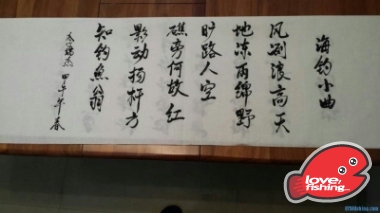 海钓小曲
风刮凌高天
地冻雨绵野
旷路人空
礁旁何故红
影动扬杆方
知钓魚翁
甲午年春
love,
fishing...